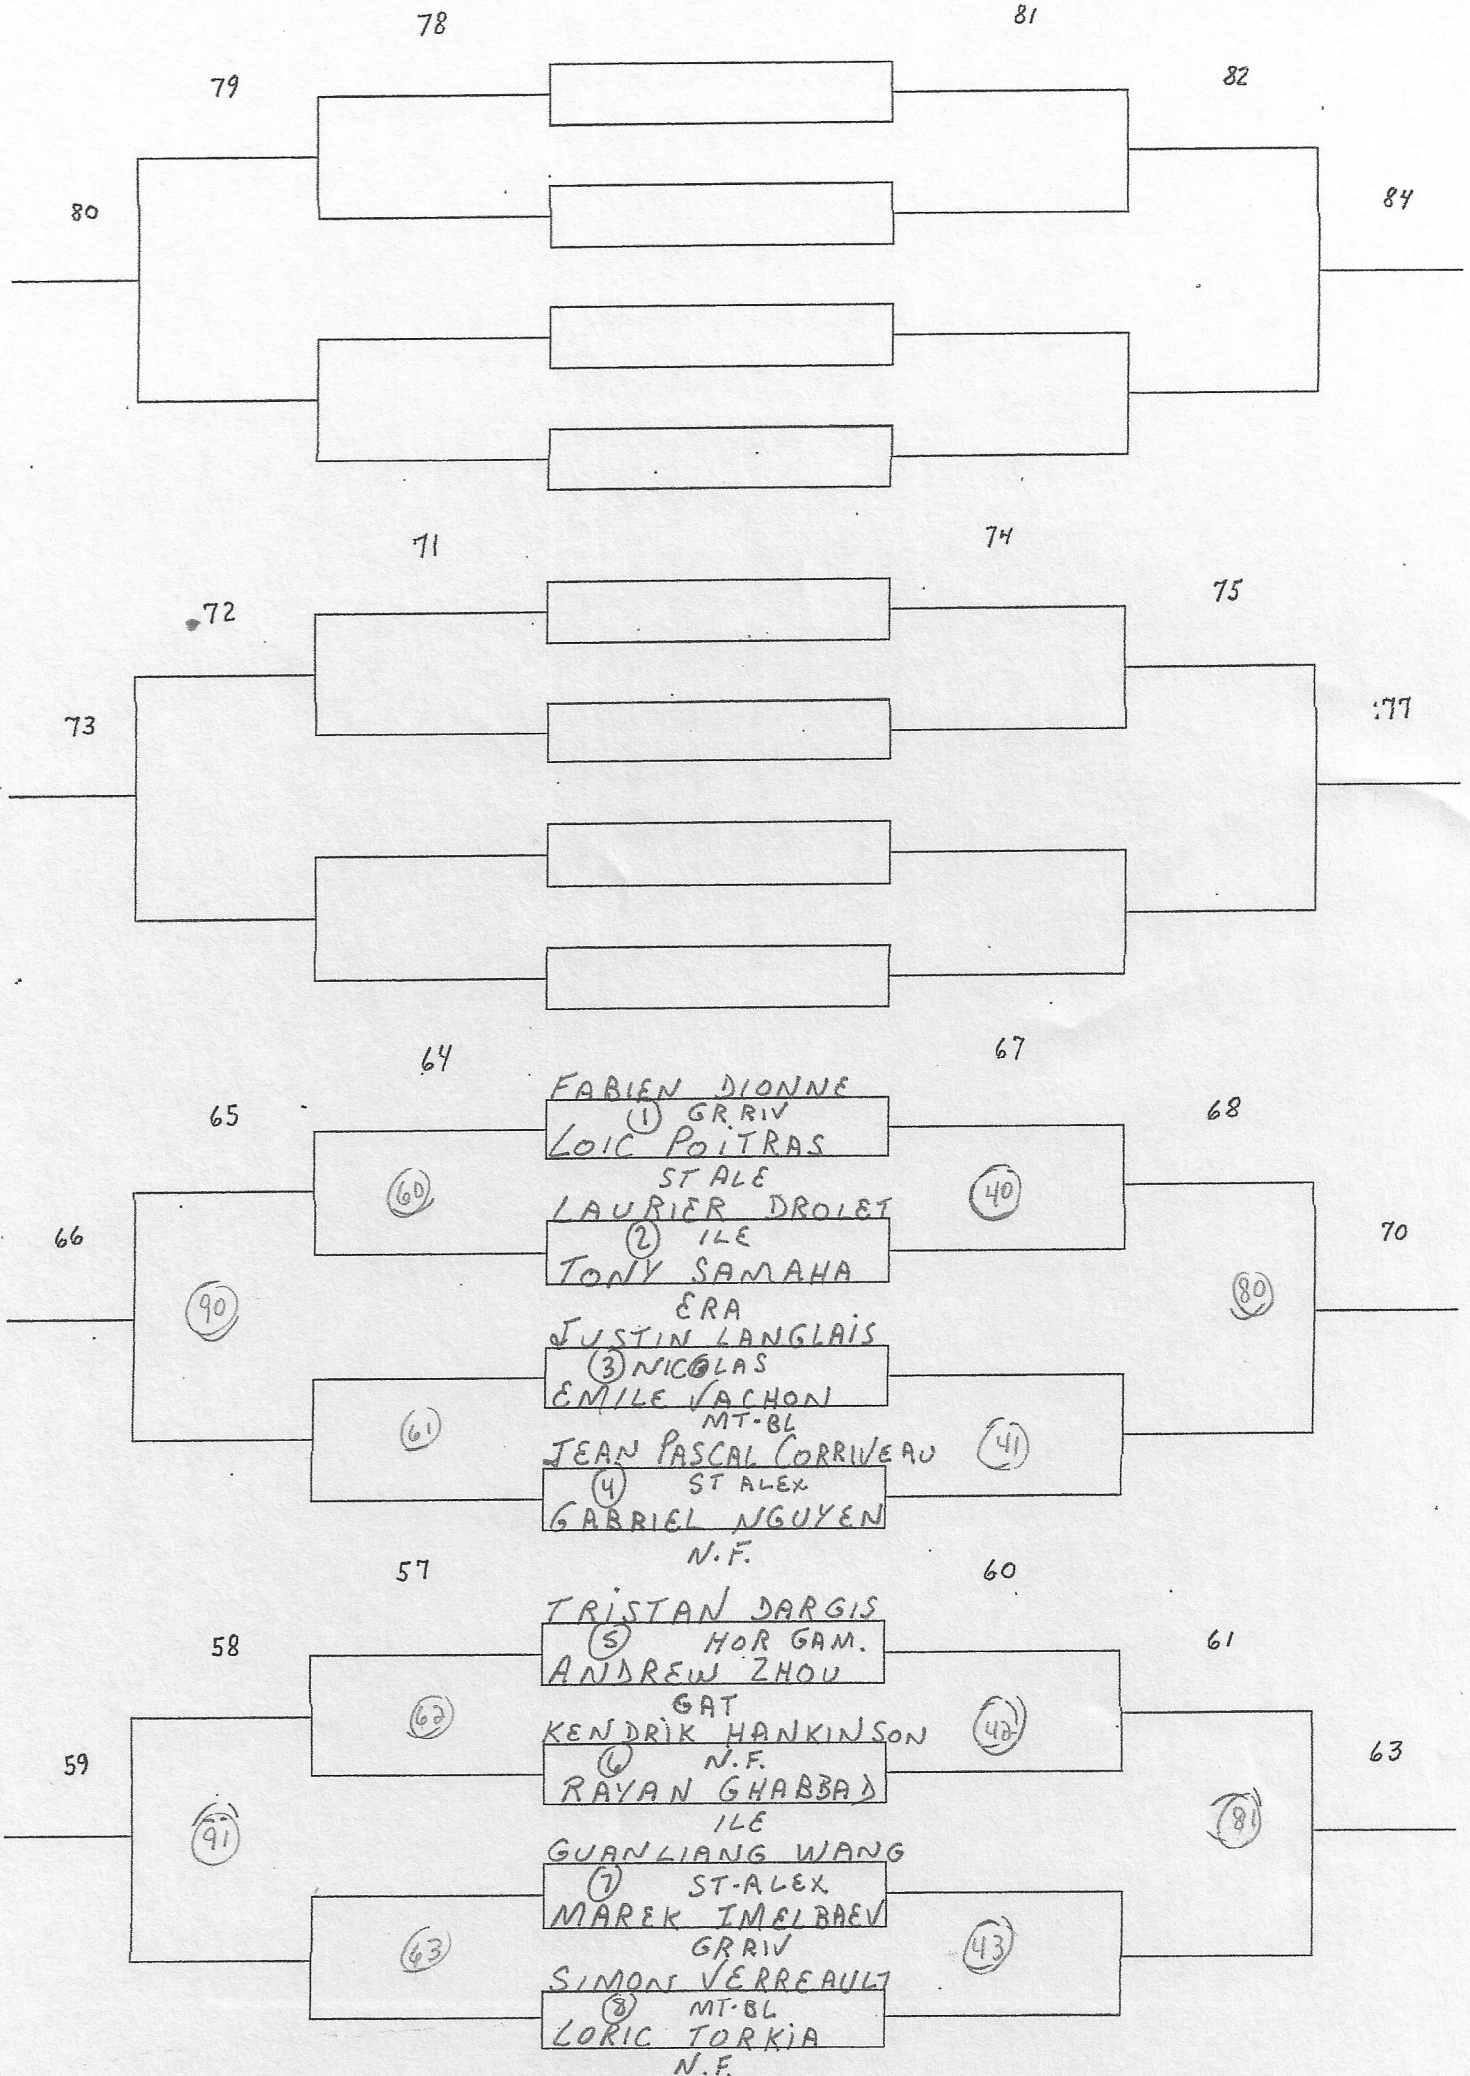 78
81
79
82
80
84
71
74
72
75
73
77
64
67
FABIEN DIONNE
65
① GR RIV
68
LOIC POITRAS
ST ALE
60
40
LAURIER DROLET
66
② ILE
70
TONY SAMAHA
90
80
ERA
JUSTIN LANGLAIS
③ NICOLAS
EMILE VACHON
MT-BL
61
41
JEAN PASCAL CORRIVEAU
④ ST ALEX
GABRIEL NGUYEN
N.F.
57
60
TRISTAN DARGIS
58
⑤ HOR GAM.
61
ANDREW ZHOU
GAT
62
42
KENDRIK HANKINSON
59
⑥ N.F.
63
RAYAN GHABBAD
91
81
ILE
GUANLIANG WANG
⑦ ST-ALEX
MAREK IMELBAEV
GR RIV
63
43
SIMON VERREAULT
⑧ MT-BL
LORIC TORKIA
N.F.